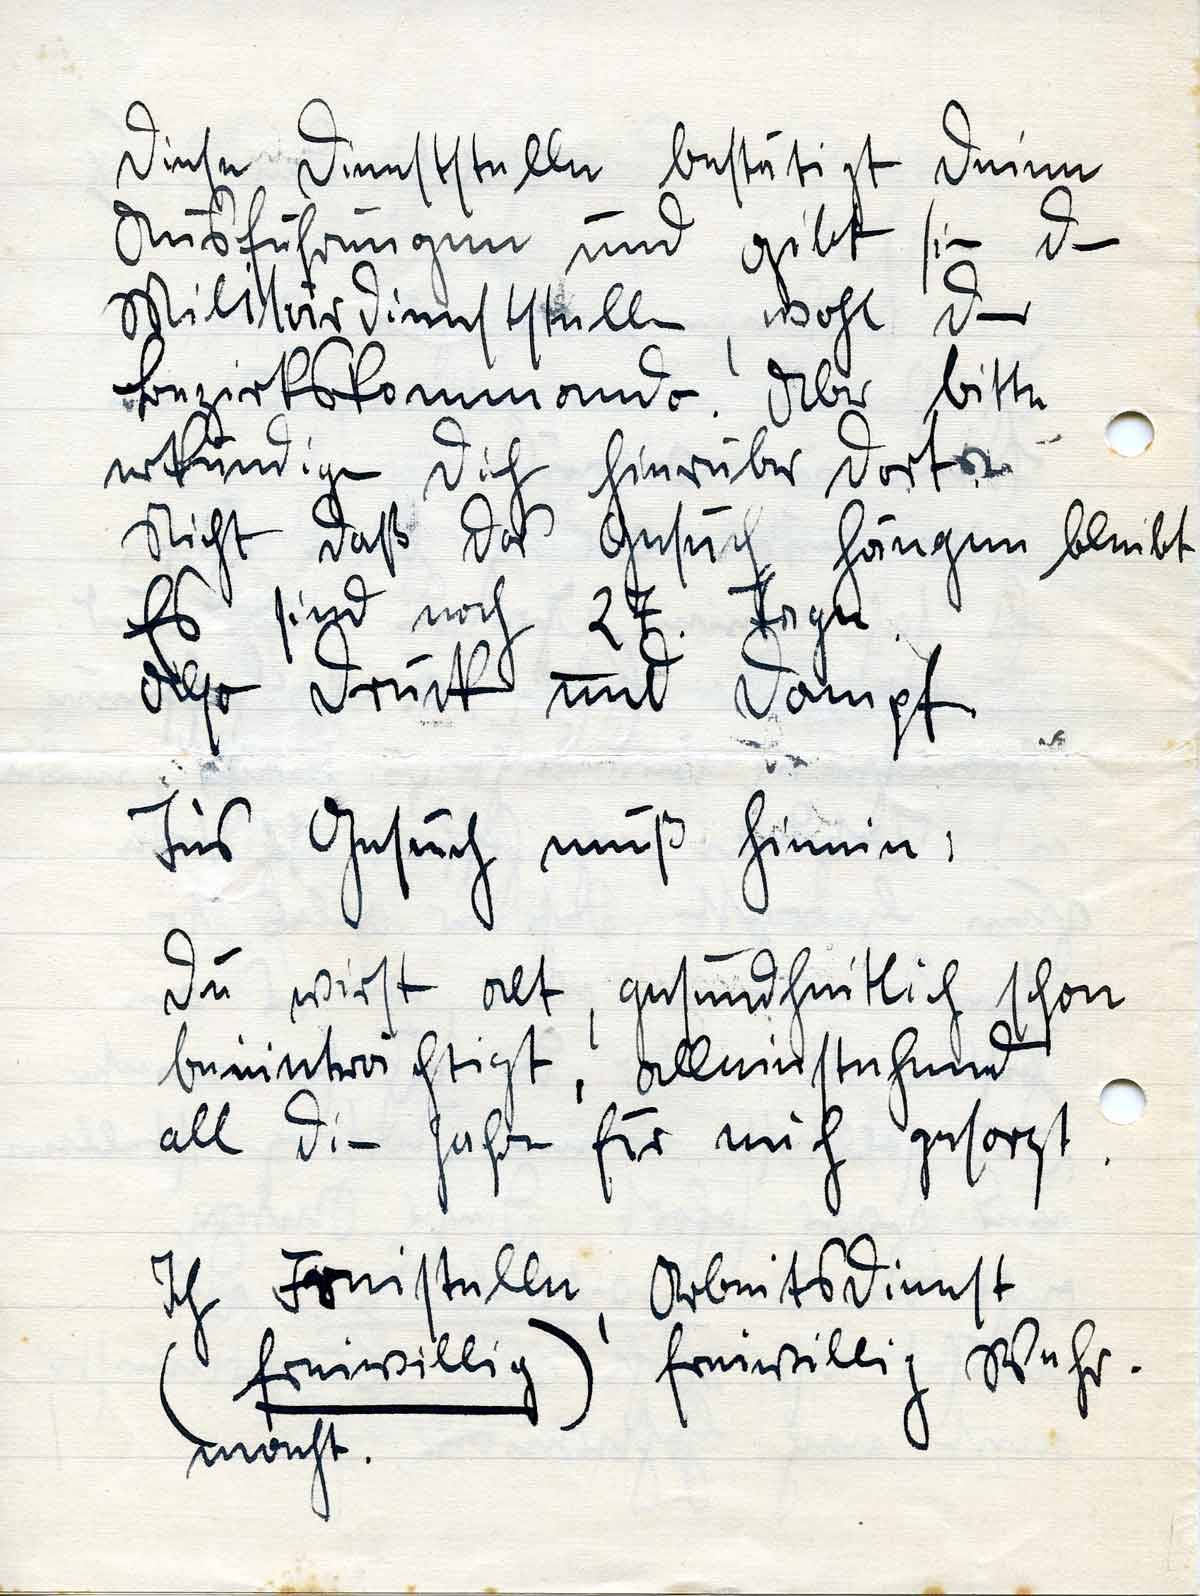 Diese Dienststelle bestätigt Deine
Ausführungen und gibt sie d
Militärdienststelle, wohl der
Bezirkskommando. Aber bitte
erkundige Dich hierüber dort
Nicht daß das Gesuch hängen bleibt
Es sind noch 27. Tage.
Also Druck und Dampf.
Ins Gesuch muß hinein:
Du wirst alt, gesundheitlich schon
beeinträchtigt, alleinstehend
all die Jahre für mich gesorgt.
Ich Freistelle, Arbeitsdienst
(freiwillig) freiwillig Wehr-
macht.